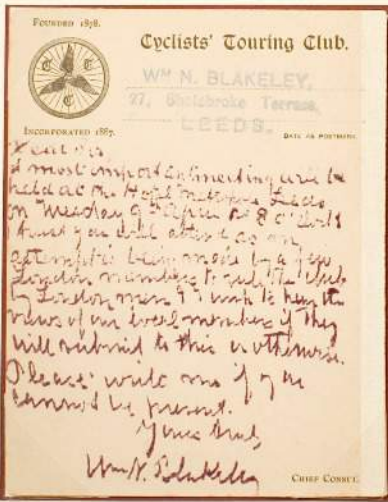 FOUNDED 1878.
Cyclists' Touring Club.
C T C
WM N. BLAKELEY,
27, Terrace,
LEEDS.
INCORPORATED 1887.
DATE AS POSTMARK.
Dear Sir,
A most important meeting will be
held at the Hotel Metropole Leeds
on 9th April at 8 o'clock
I trust you will attend as an
attempt is being made by a few
London members to rule the Club
by London men & I wish to hear the
views of our local members if they
will submit to this or otherwise.
Please write me if you
cannot be present.
Yours truly
Wm N. Blakeley
CHIEF CONSUL